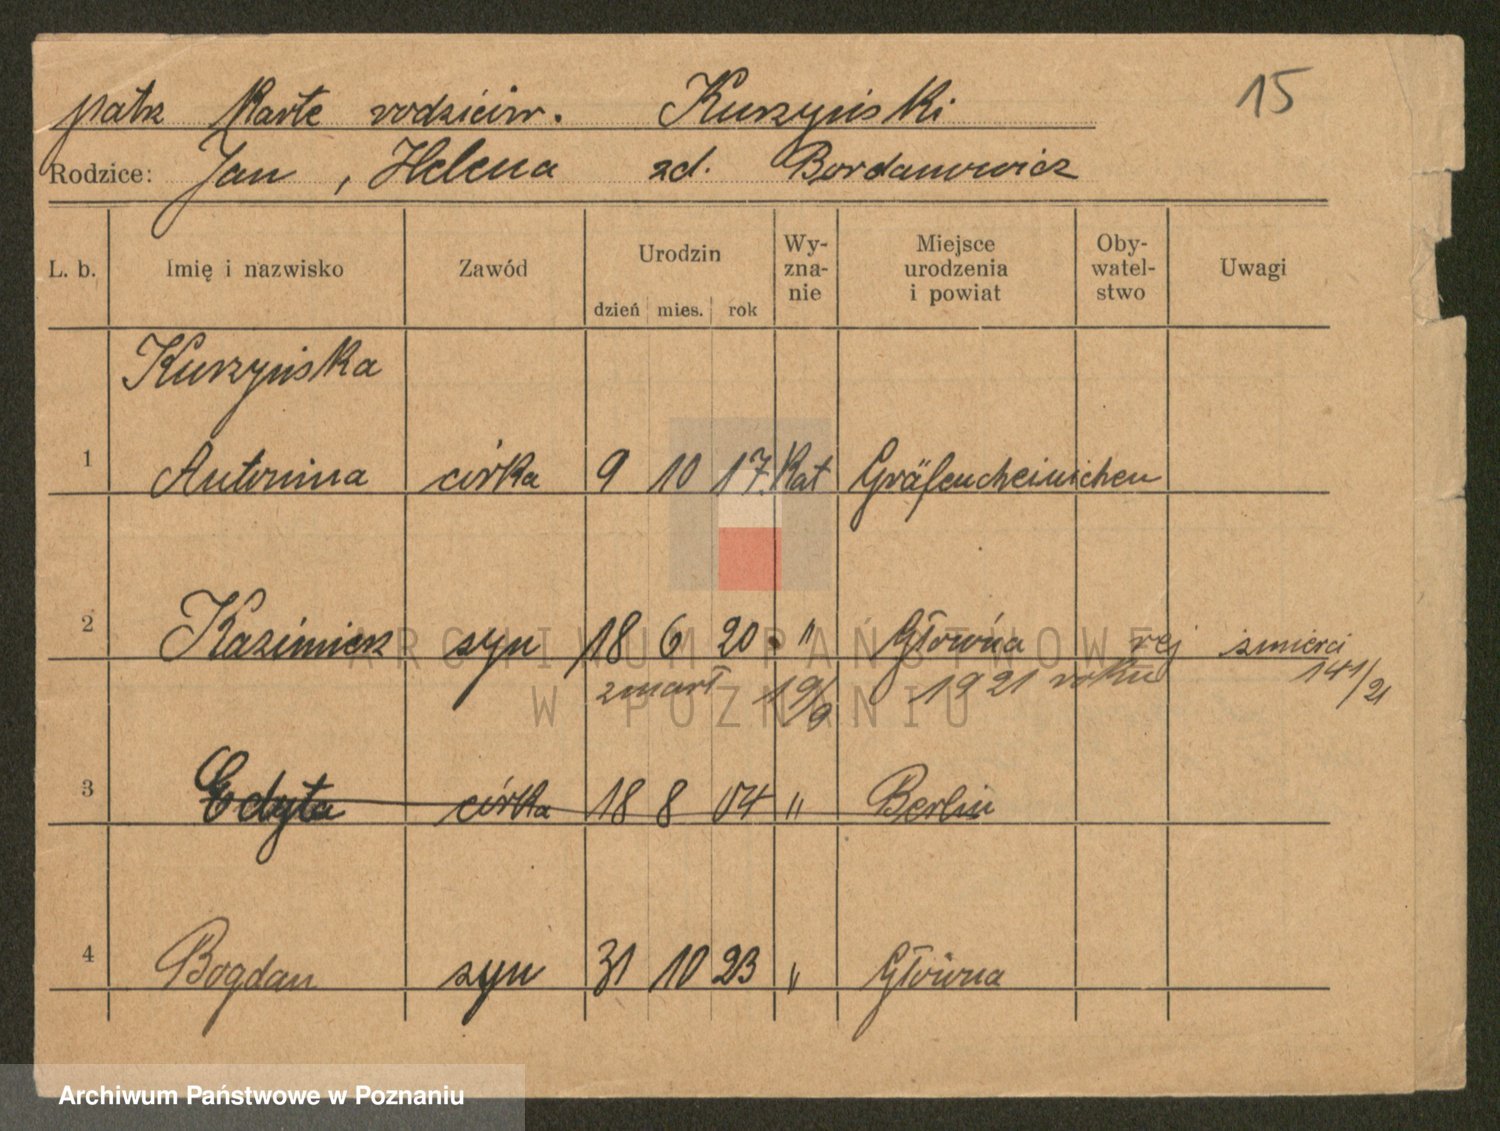 patrz Kartę rodziców. Kurzyński 15
Rodzice: Jan, Helena zd. Bordanowicz
L. b. Imię i nazwisko Zawód Urodzin dzień mies. rok Wy-zna-nie Miejsce urodzenia i powiat Oby-watel-stwo Uwagi
Kurzyńska
1 Antonina córka 9 10 17. Kat Gräfencheinichen
2 Kazimierz syn 18 6 20 " Główna rej śmierci
zmarł 19/9 1921 roku 141/21
3 Edyta córka 18 8 04 " Berlin
4 Bogdan syn 31 10 23 " Główna
ARCHIWUM PAŃSTWOWE
W POZNANIU
Archiwum Państwowe w Poznaniu